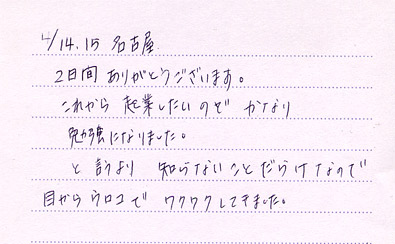 4/14.15 名古屋
2日間 ありがとうございます。
これから 起業したいので かなり
勉強になりました。
と 言うより 知らないことだらけなので
目からウロコで ワクワクしてきました。